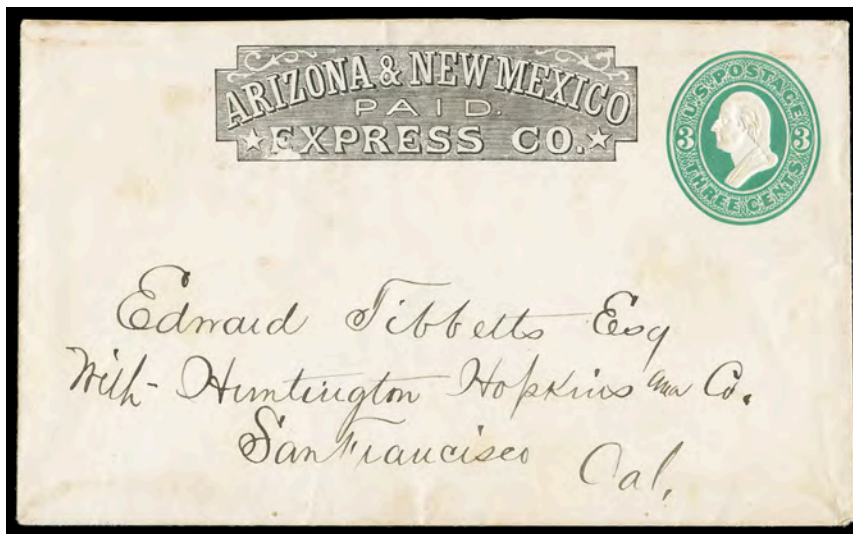 ARIZONA & NEW MEXICO
PAID.
★EXPRESS CO.★
U.S. POSTAGE
3 3
THREE CENTS
Edward Tibbetts Esq
With - Huntington Hopkins and Co.
San Francisco
Cal,